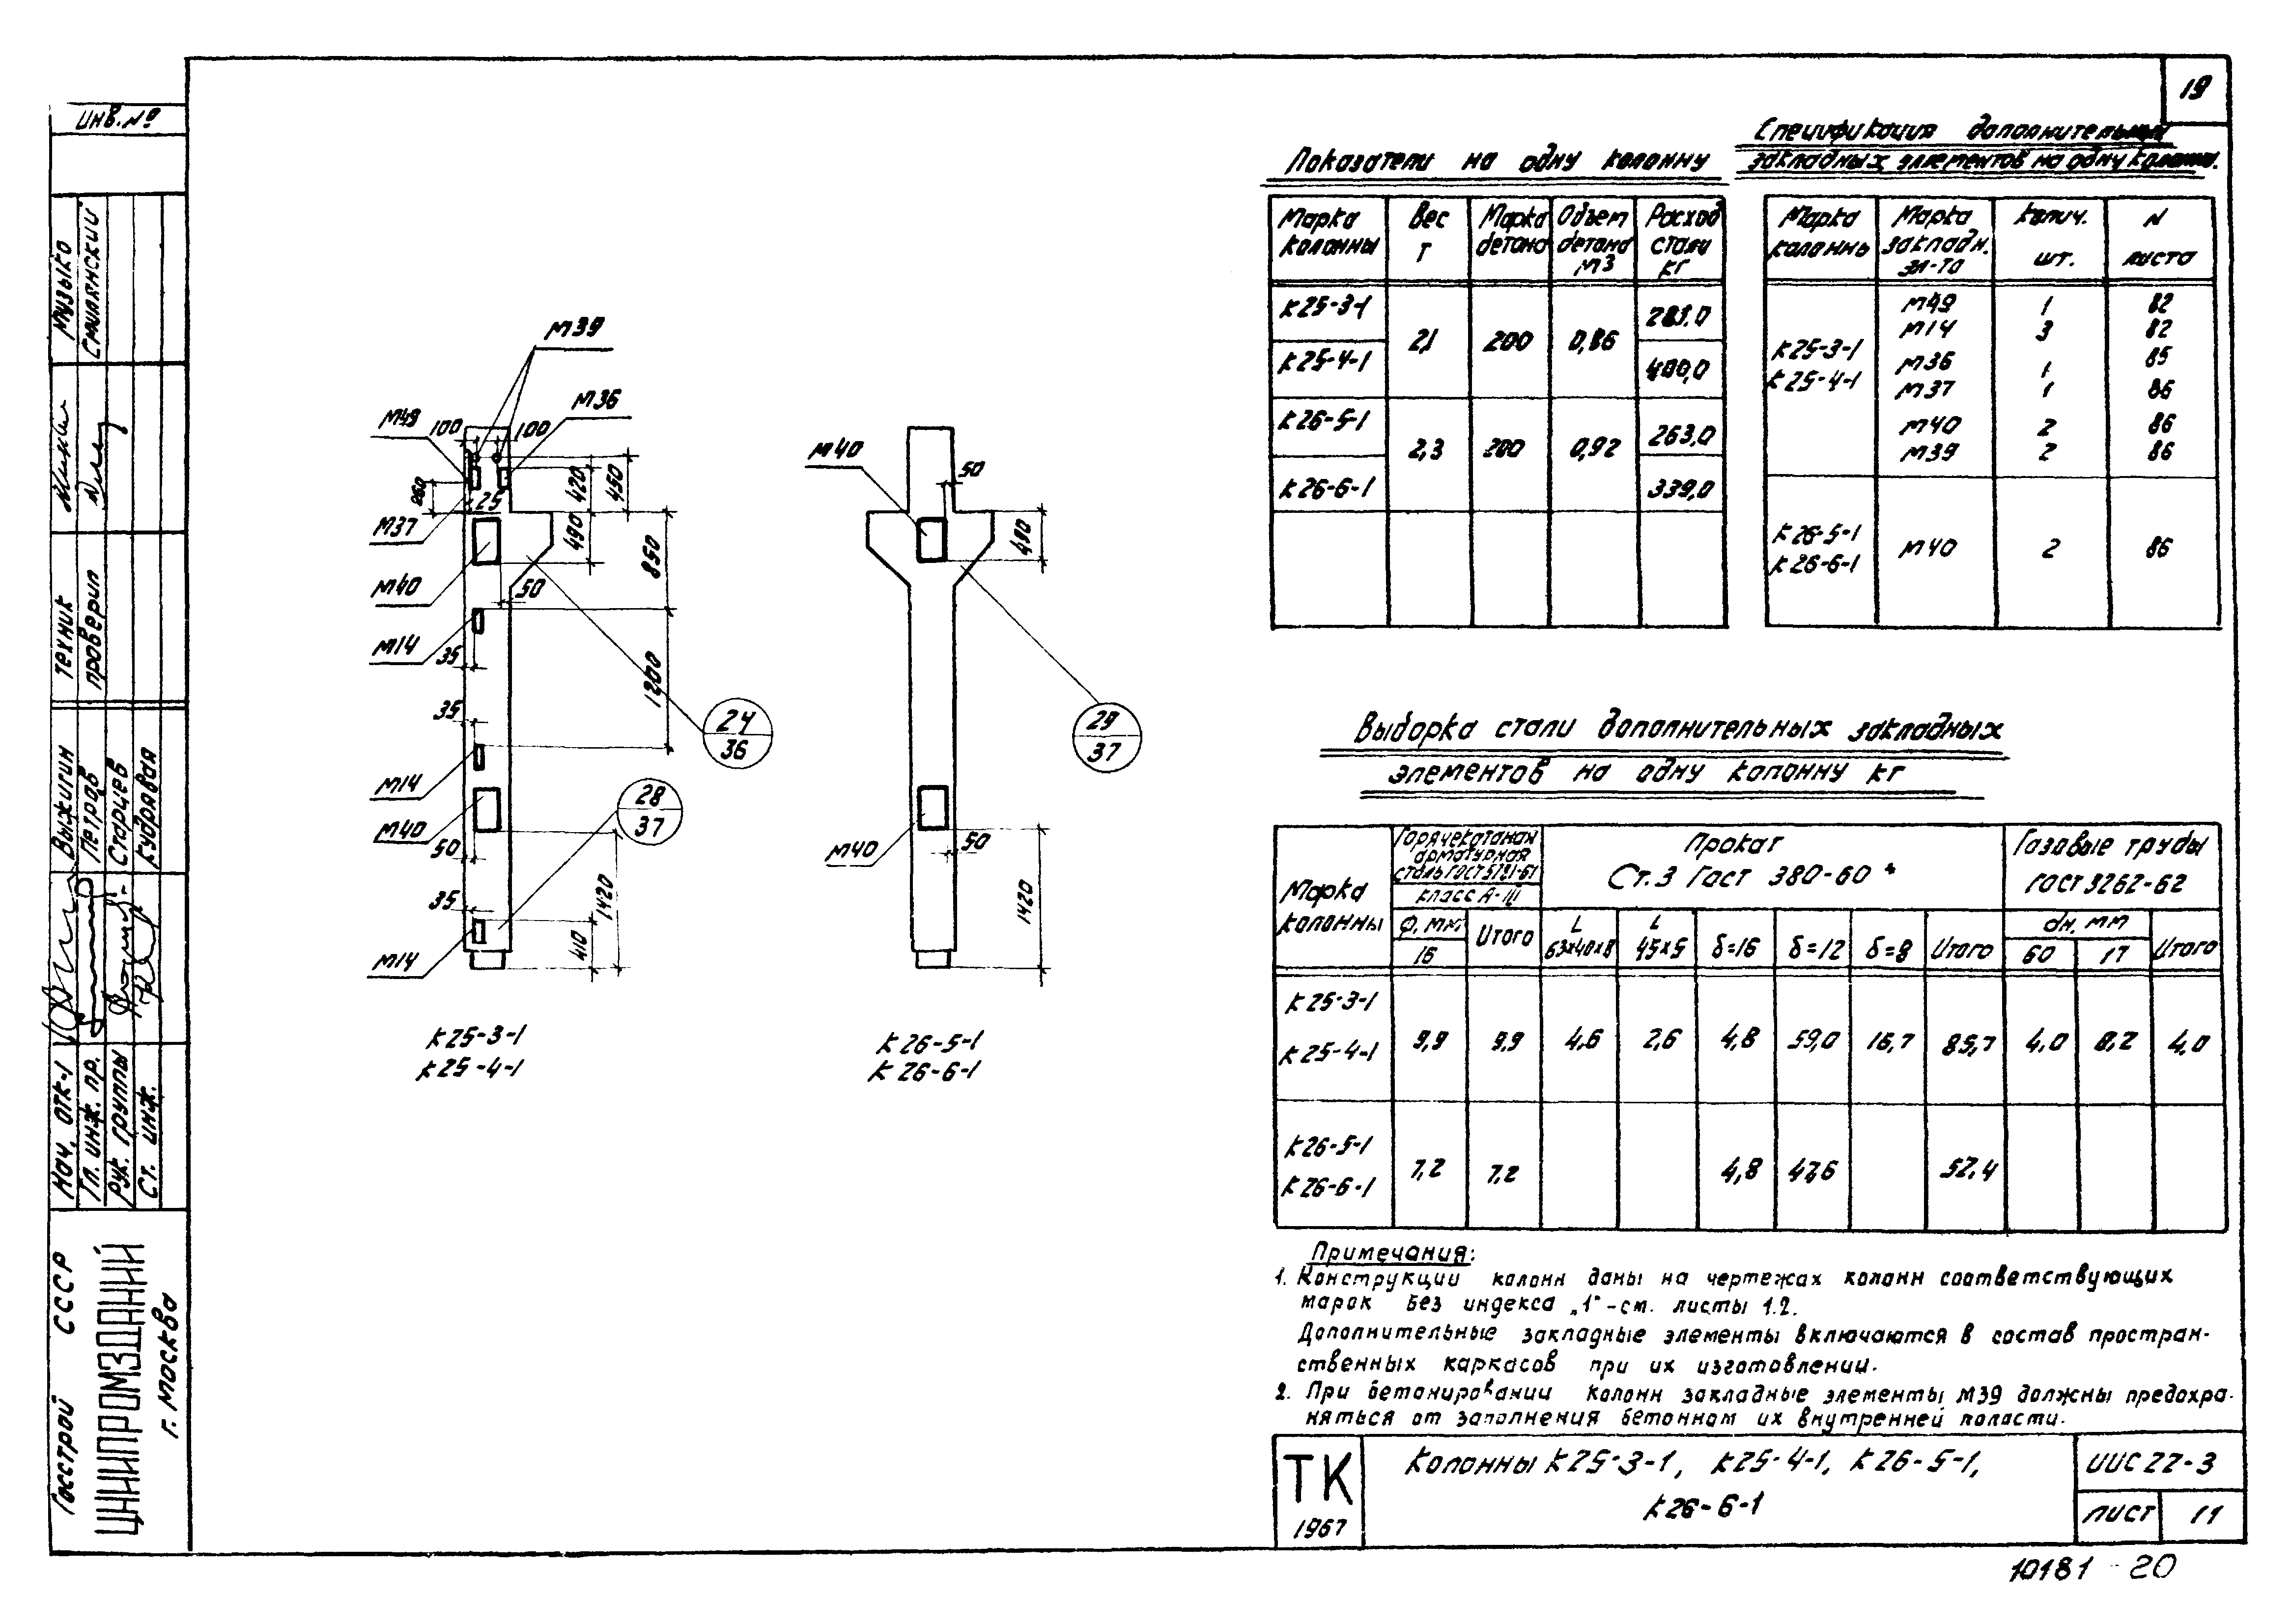 19
Инв.№
Музыко
Смилянский
техник
проверил
Выжигин
Петров
Старцев
Кудрявая
Нач. ОТК-1
Гл. инж. пр.
Рук. группы
Ст. инж.
Госстрой СССР
ЦНИИПРОМЗДАНИЙ
г. Москва
М39
М36
М49
100
100
260
25
420
450
М37
490
850
М40
50
М14
35
1200
35
24
36
М14
28
37
М40
50
1420
35
410
М14
К25-3-1
К25-4-1
М40
50
490
29
37
М40
50
1420
К26-5-1
К26-6-1
Показатели на одну колонну
Марка колонны
Вес Т
Марка бетона
Объем бетона м3
Расход стали кг
К25-3-1
2,1 200 0,86
К25-4-1
400,0
К26-5-1 263,0
2,3 200 0,92
К26-6-1 339,0
Спецификация дополнительных
закладных элементов на одну колонну.
Марка колонны
Марка закладн. эл-та
Колич. шт.
N листа
К25-3-1
К25-4-1
М49 1 82
М14 3 82
М36 1 85
М37 1 86
М40 2 86
М39 2 86
К26-5-1
К26-6-1
М40 2 86
Выборка стали дополнительных закладных
элементов на одну колонну кг
Марка колонны
Горячекатаная арматурная сталь ГОСТ 5781-61
класс А-III
Прокат
Ст.3 Гост 380-60*
Газовые трубы
ГОСТ 3262-62
Ф, мм
16
Итого
L 63х40х8
L 45х5
δ=16
δ=12
δ=8
Итого
dн, мм
60
17
Итого
К25-3-1
К25-4-1
9,9 9,9 4,6 2,6 4,8 59,0 4,0 0,2 4,0
К26-5-1
К26-6-1
7,2 7,2 4,8 47,6 52,4
Примечания:
1. Конструкции колонн даны на чертежах колонн соответствующих
марок без индекса „1" - см. листы 1.2.
Дополнительные закладные элементы включаются в состав простран-
ственных каркасов при их изготовлении.
2. При бетонировании колонн закладные элементы М39 должны предохра-
няться от заполнения бетонном их внутренней полости.
ТК
1967
Колонны К25-3-1, К25-4-1, К26-5-1,
К26-6-1
ИИС22-3
лист 11
10181-20